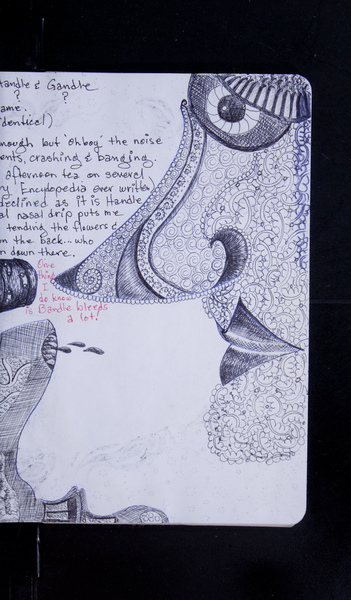 Handle & Gandle
? ?
ame.
identical)
nough but 'oh boy' the noise
ents, crashing & banging.
afternoon tea on several
ry Encyclopedia ever written
declined as it is Handle
al nasal drip puts me
tending the flowers &
in the back... who
n down there.
One
thing
I
do know
is Bandle bleeds
a lot!